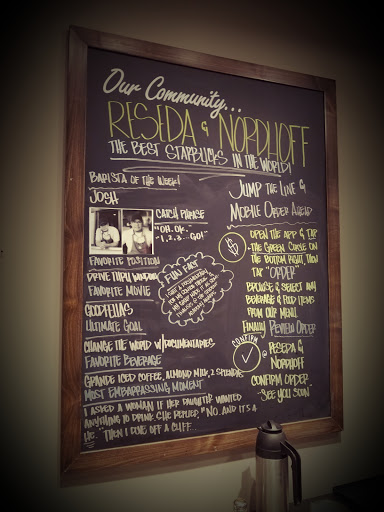 Our Community...
RESEDA & NORDHOFF
THE BEST STARBUCKS IN THE WORLD!
BARISTA OF THE WEEK!
JOSH
CATCH PHRASE
"OH, OK."
"1, 2, 3... GO!"
FAVORITE POSITION
DRIVE THRU WINDOW
FAVORITE MOVIE
GOODFELLAS
ULTIMATE GOAL
CHANGE THE WORLD W/DOCUMENTARIES
FAVORITE BEVERAGE
GRANDE ICED COFFEE, ALMOND MILK, 2 SPLENDAS
MOST EMBARRASSING MOMENT
I ASKED A WOMAN IF HER DAUGHTER WANTED
ANYTHING TO DRINK. SHE REPLIED, "NO, AND IT'S A
HE." THEN I DOVE OFF A CLIFF.
FUN FACT
JUMP THE LINE &
MOBILE ORDER AHEAD
OPEN THE APP & TAP
THE GREEN CIRCLE ON
THE BOTTOM RIGHT, THEN
TAP "ORDER"
BROWSE & SELECT ANY
BEVERAGE & FOOD ITEMS
FROM OUR MENU
FINALLY REVIEW ORDER
CONFIRM
@ RESEDA &
NORDHOFF
CONFIRM ORDER
"SEE YOU SOON"